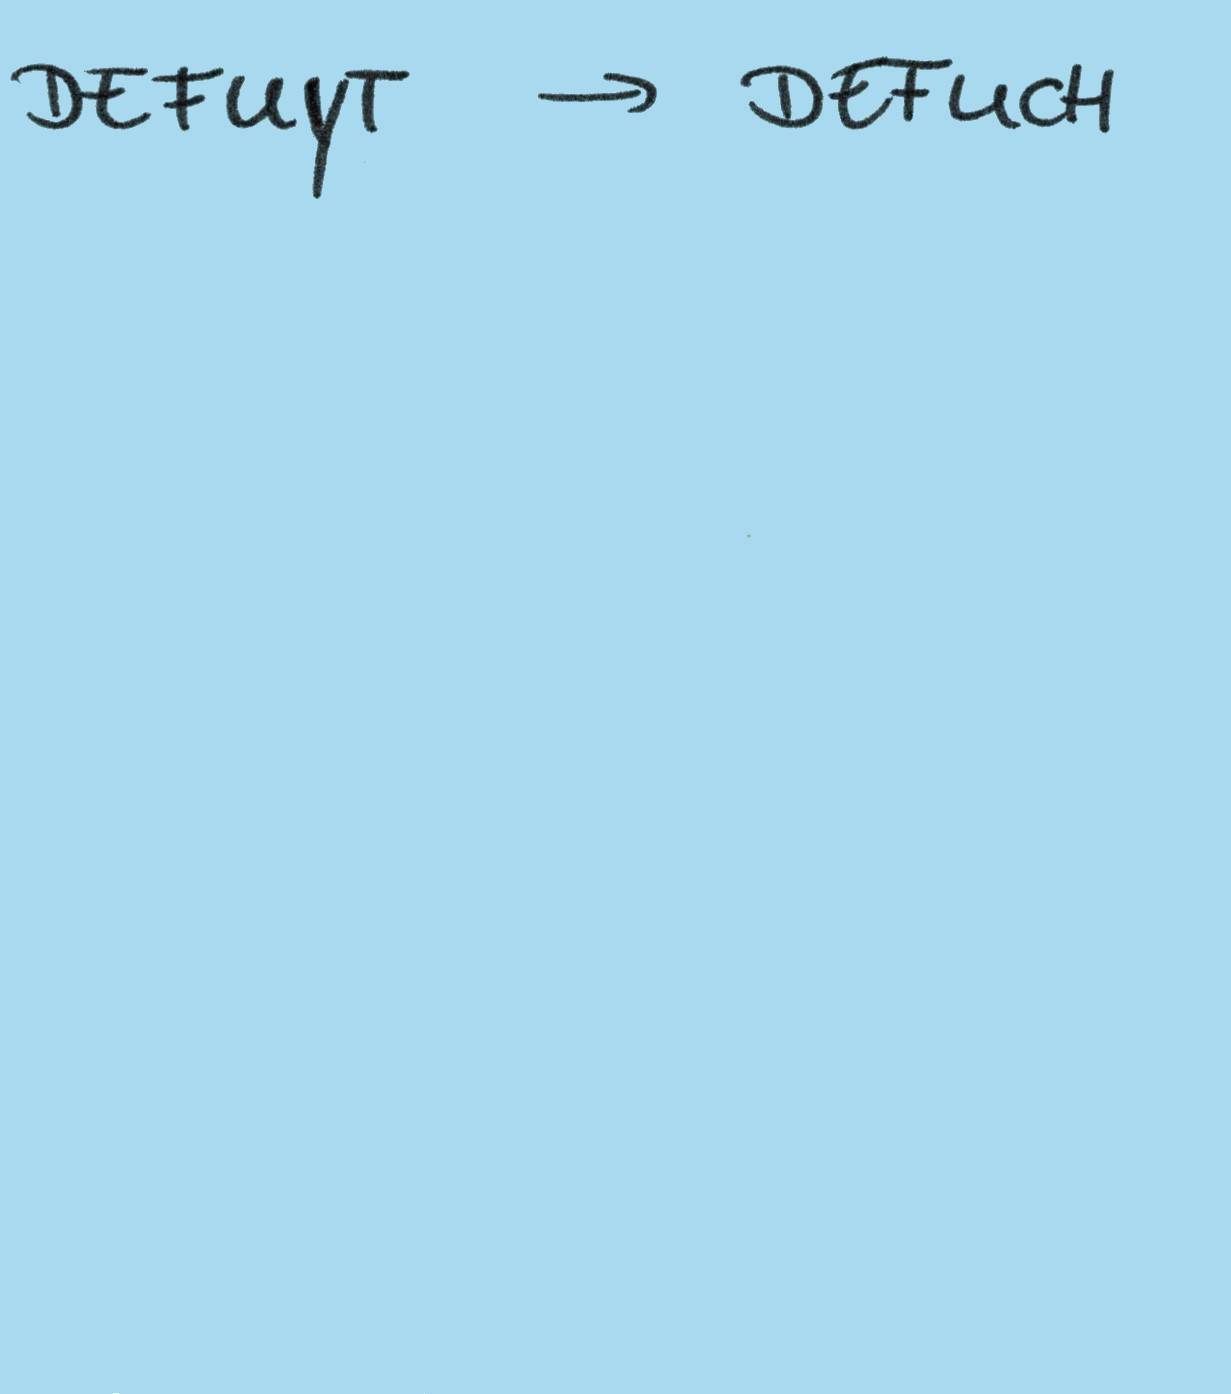 DEFUYT → DEFUCH